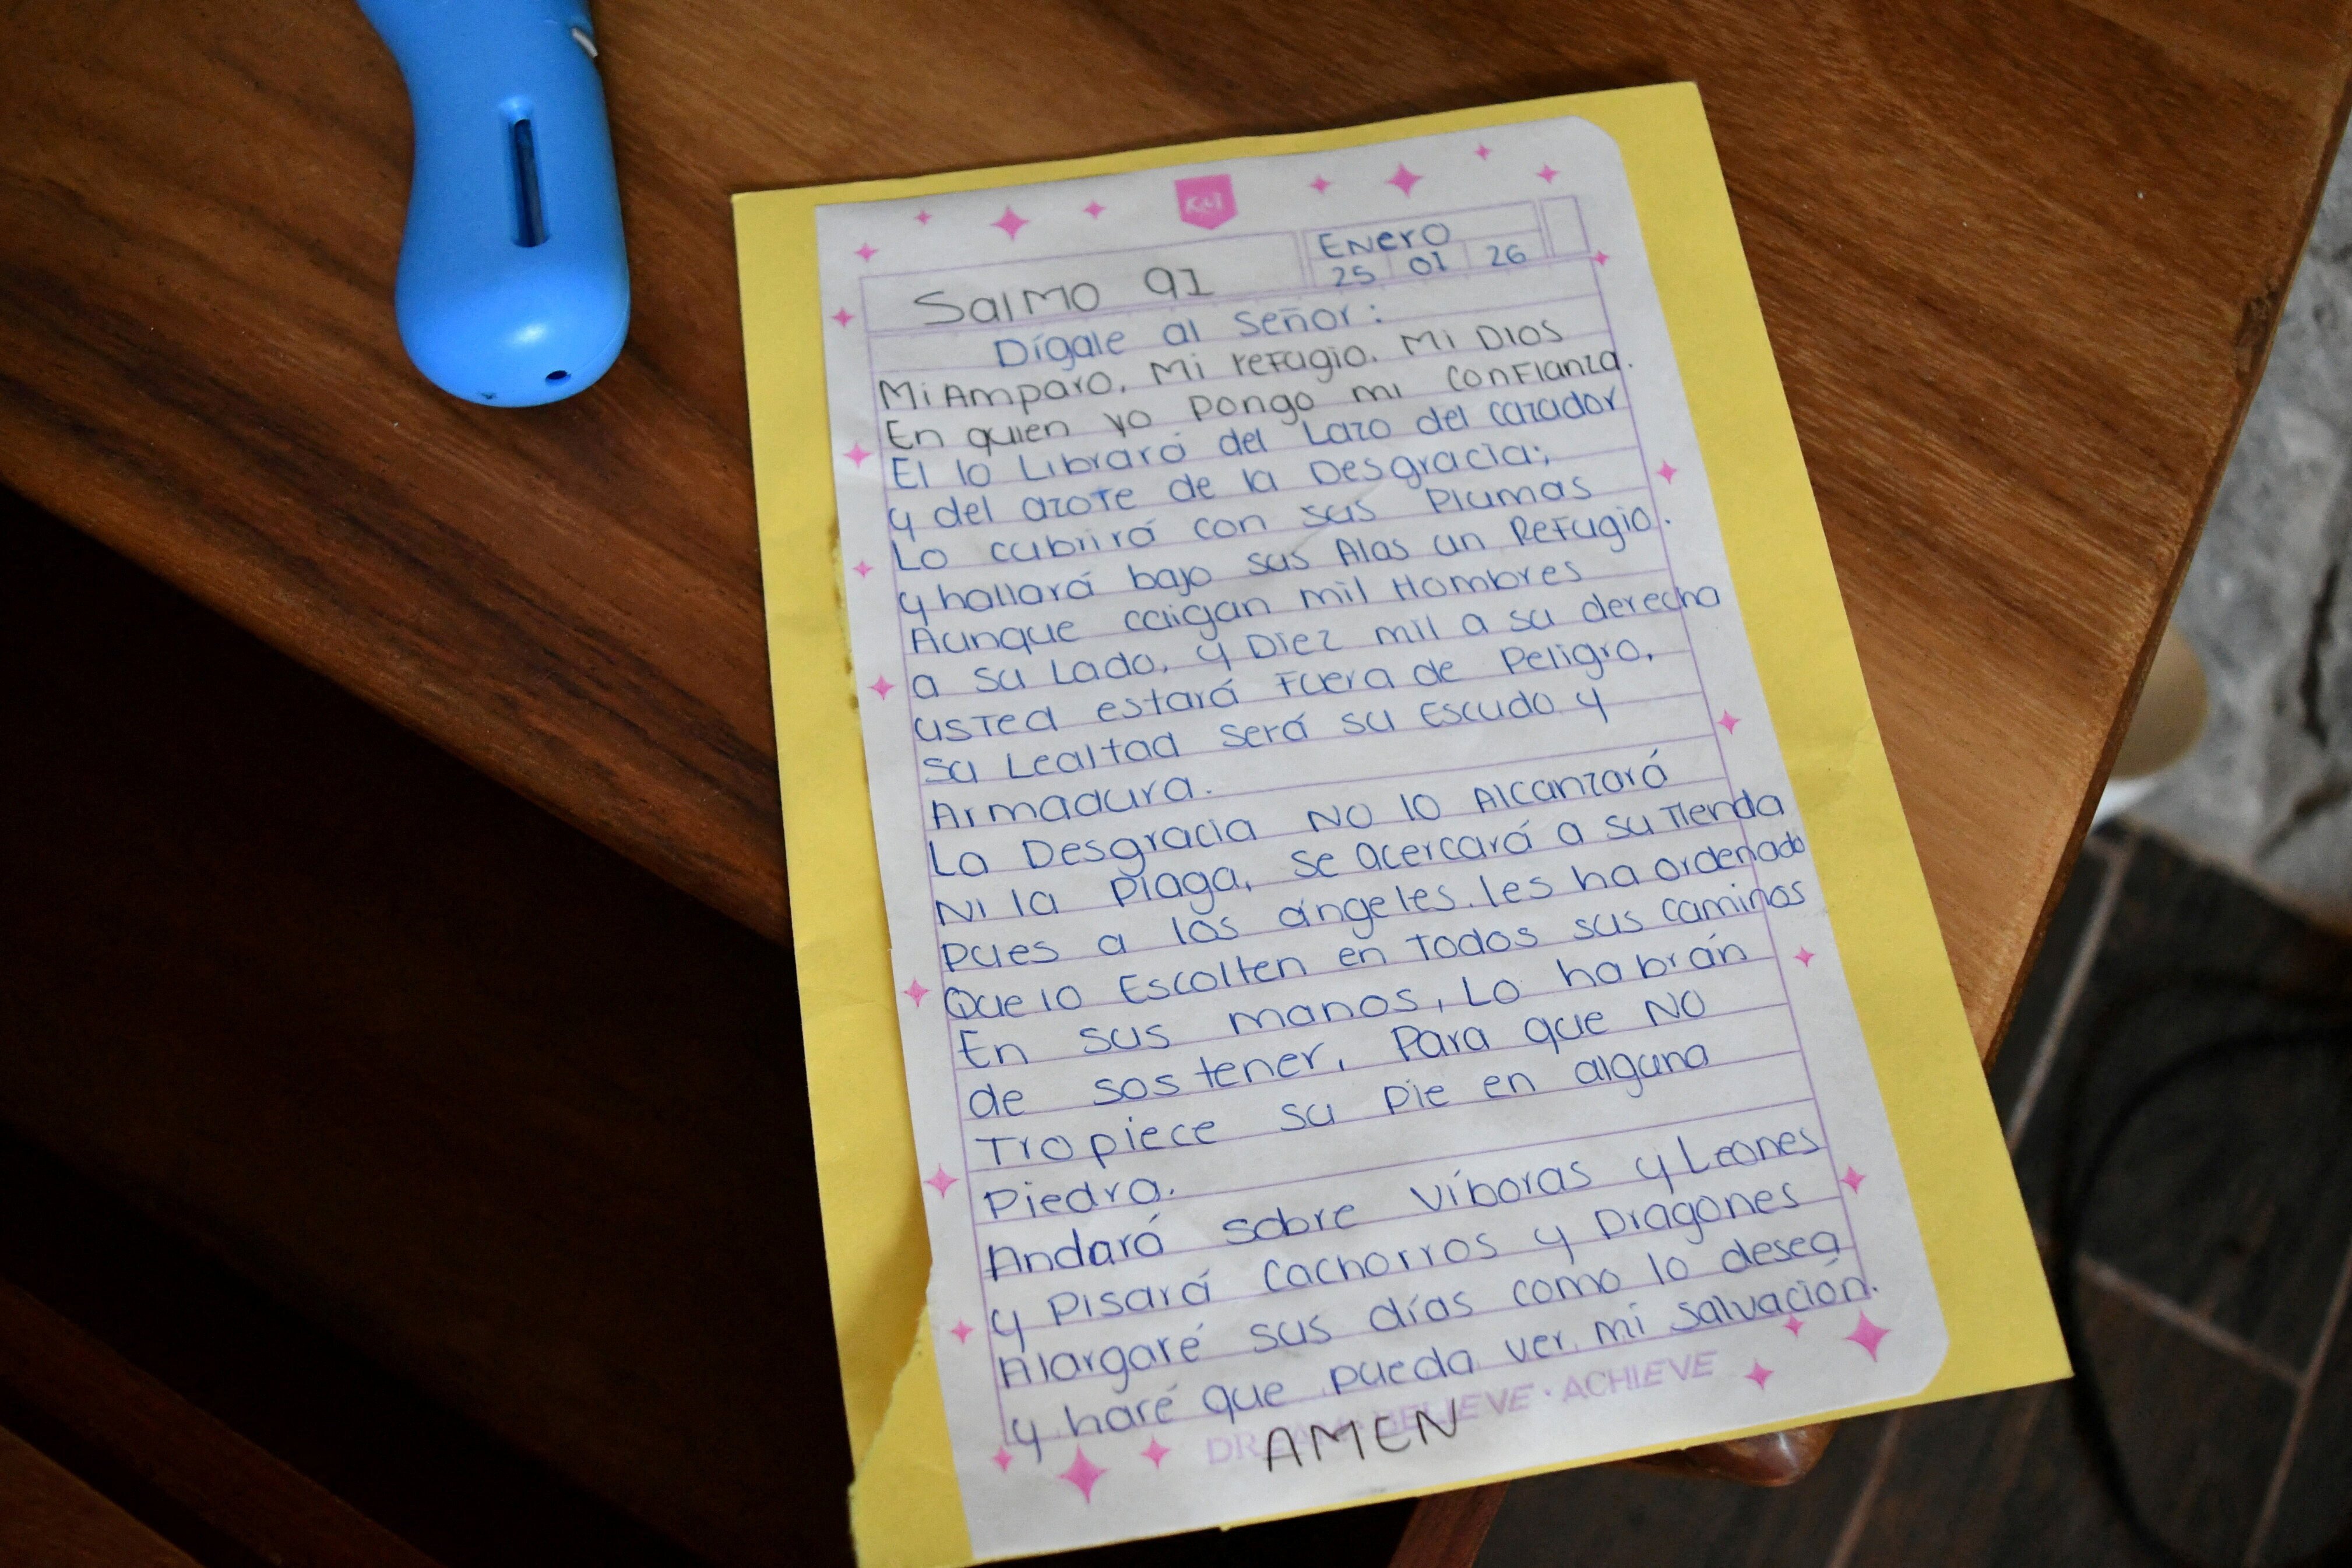 K&I
Enero
Salmo 91
25 01 26
Dígale al señor:
Mi Amparo, Mi refugio. Mi Dios
En quien yo Pongo mi confianza.
El lo Librará del Lazo del cazador
y del azote de la Desgracia;
Lo cubrirá con sus Plumas
y hallará bajo sus Alas un Refugio.
Aunque caigan mil Hombres
a su Lado, y Diez mil a su derecha
usted estará fuera de Peligro,
su Lealtad será su Escudo y
Armadura.
La Desgracia NO lo Alcanzará
Ni la Plaga, se acercará a su Tienda
Pues a los ángeles, les ha ordenado
Que lo Escolten en Todos sus caminos
En sus manos, Lo habrán
de sostener, Para que NO
Tropiece su Pie en alguna
Piedra.
Andará sobre víboras y Leones
y Pisará cachorros y Dragones
Alargaré sus días como lo desea
y haré que pueda ver mi salvación.
DREAM · BELIEVE · ACHIEVE
AMEN